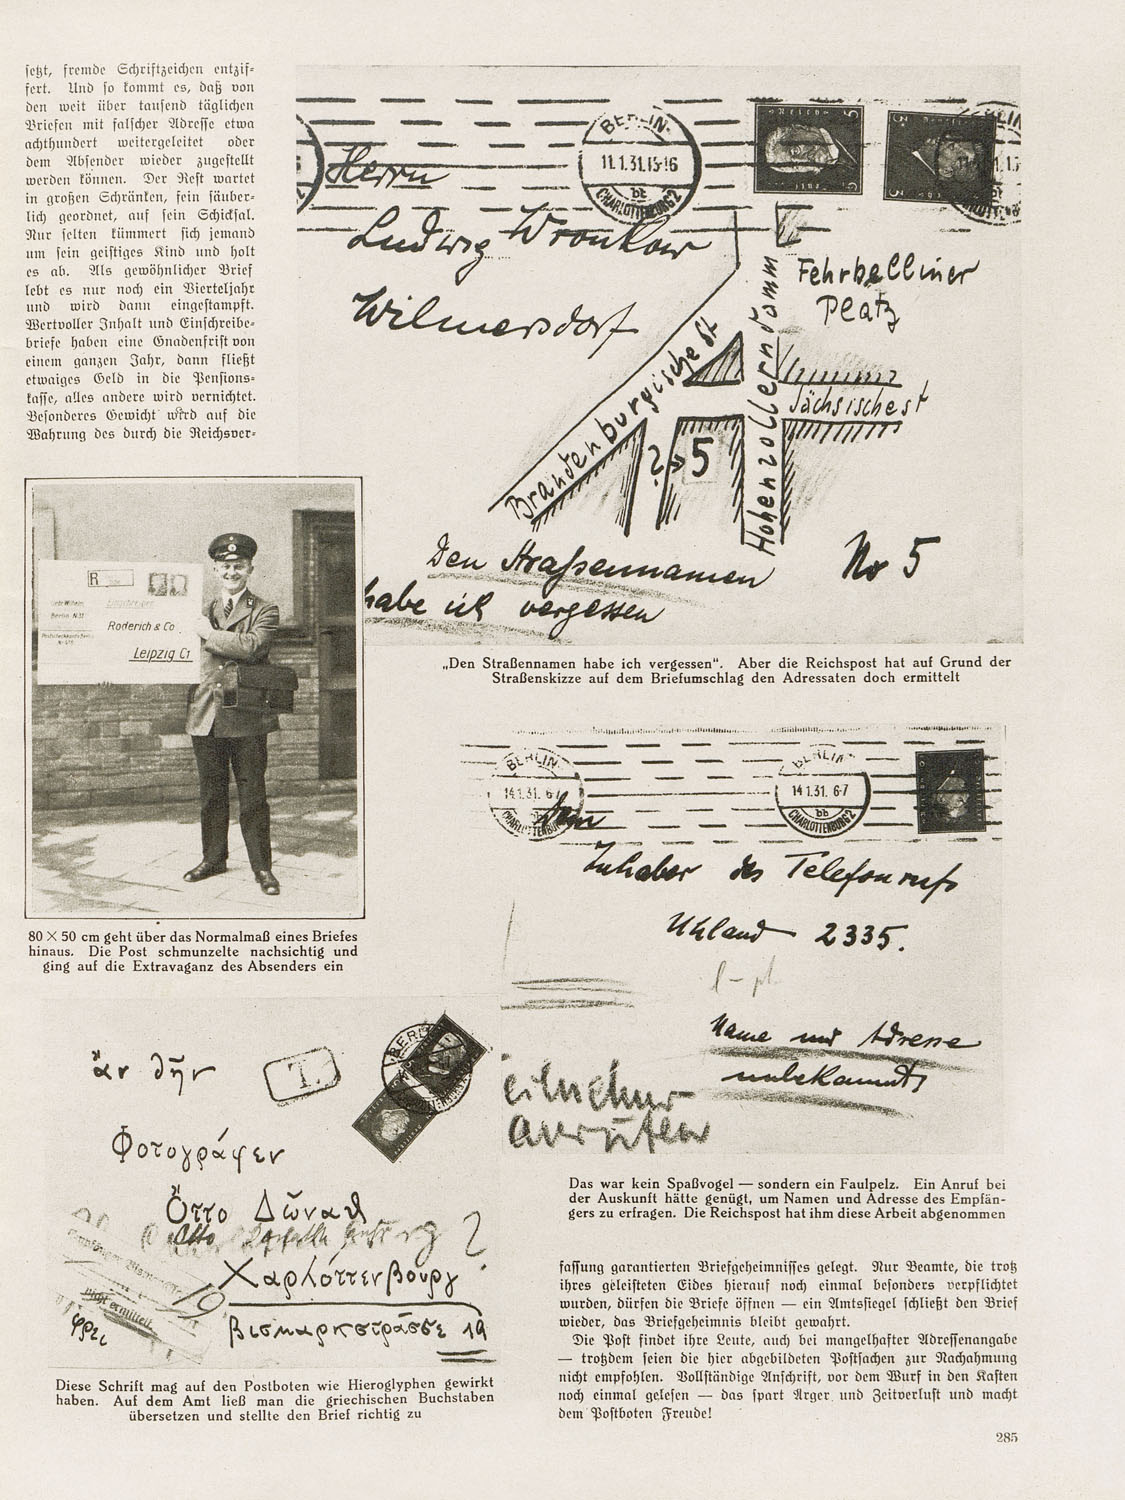 setzt, fremde Schriftzeichen entzif-
fert. Und so kommt es, daß von
den weit über tausend täglichen
Briefen mit falscher Adresse etwa
achthundert weitergeleitet oder
dem Absender wieder zugestellt
werden können. Der Rest wartet
in großen Schränken, fein säuber-
lich geordnet, auf sein Schicksal.
Nur selten kümmert sich jemand
um sein geistiges Kind und holt
es ab. Als gewöhnlicher Brief
lebt es nur noch ein Vierteljahr
und wird dann eingestampft.
Wertvoller Inhalt und Einschreibe-
briefe haben eine Gnadenfrist von
einem ganzen Jahr, dann fließt
etwaiges Geld in die Pensions-
kasse, alles andere wird vernichtet.
Besonderes Gewicht wird auf die
Wahrung des durch die Reichsver-
BERLIN
11.1.31.15-16
bt
CHARLOTTENBURG 2
Herrn
Ludwig Wronkow
Wilmersdorf
Fehrbelliner
Platz
Brandenburgische St
Hohenzollerndamm
Sächsischest
? → 5
Den Strassennamen
habe ich vergessen
No 5
„Den Straßennamen habe ich vergessen“. Aber die Reichspost hat auf Grund der
Straßenskizze auf dem Briefumschlag den Adressaten doch ermittelt
R
Einschreiben
Berlin N31
Roderich & Co
Leipzig C1
80 × 50 cm geht über das Normalmaß eines Briefes
hinaus. Die Post schmunzelte nachsichtig und
ging auf die Extravaganz des Absenders ein
BERLIN
14.1.31. 6-7
CHARLOTTENBURG 2
BERLIN
14.1.31. 6-7
bb
CHARLOTTENBURG 2
Dem
Inhaber des Telefonrufs
Uhland 2335.
Name und Adresse
unbekannt
Das war kein Spaßvogel — sondern ein Faulpelz. Ein Anruf bei
der Auskunft hätte genügt, um Namen und Adresse des Empfän-
gers zu erfragen. Die Reichspost hat ihm diese Arbeit abgenommen
ἂν δῆν
T.
BERLIN
Φοτογράφεν
Ὄττο Δῶναθ
Otto
Χαρλόττενβουργ
Βισμαρκστράσσε 19
19
Nicht ermittelt
Diese Schrift mag auf den Postboten wie Hieroglyphen gewirkt
haben. Auf dem Amt ließ man die griechischen Buchstaben
übersetzen und stellte den Brief richtig zu
fassung garantierten Briefgeheimnisses gelegt. Nur Beamte, die trotz
ihres geleisteten Eides hierauf noch einmal besonders verpflichtet
wurden, dürfen die Briefe öffnen — ein Amtssiegel schließt den Brief
wieder, das Briefgeheimnis bleibt gewahrt.
Die Post findet ihre Leute, auch bei mangelhafter Adressenangabe
— trotzdem seien die hier abgebildeten Postsachen zur Nachahmung
nicht empfohlen. Vollständige Anschrift, vor dem Wurf in den Kasten
noch einmal gelesen — das spart Ärger und Zeitverlust und macht
dem Postboten Freude!
285